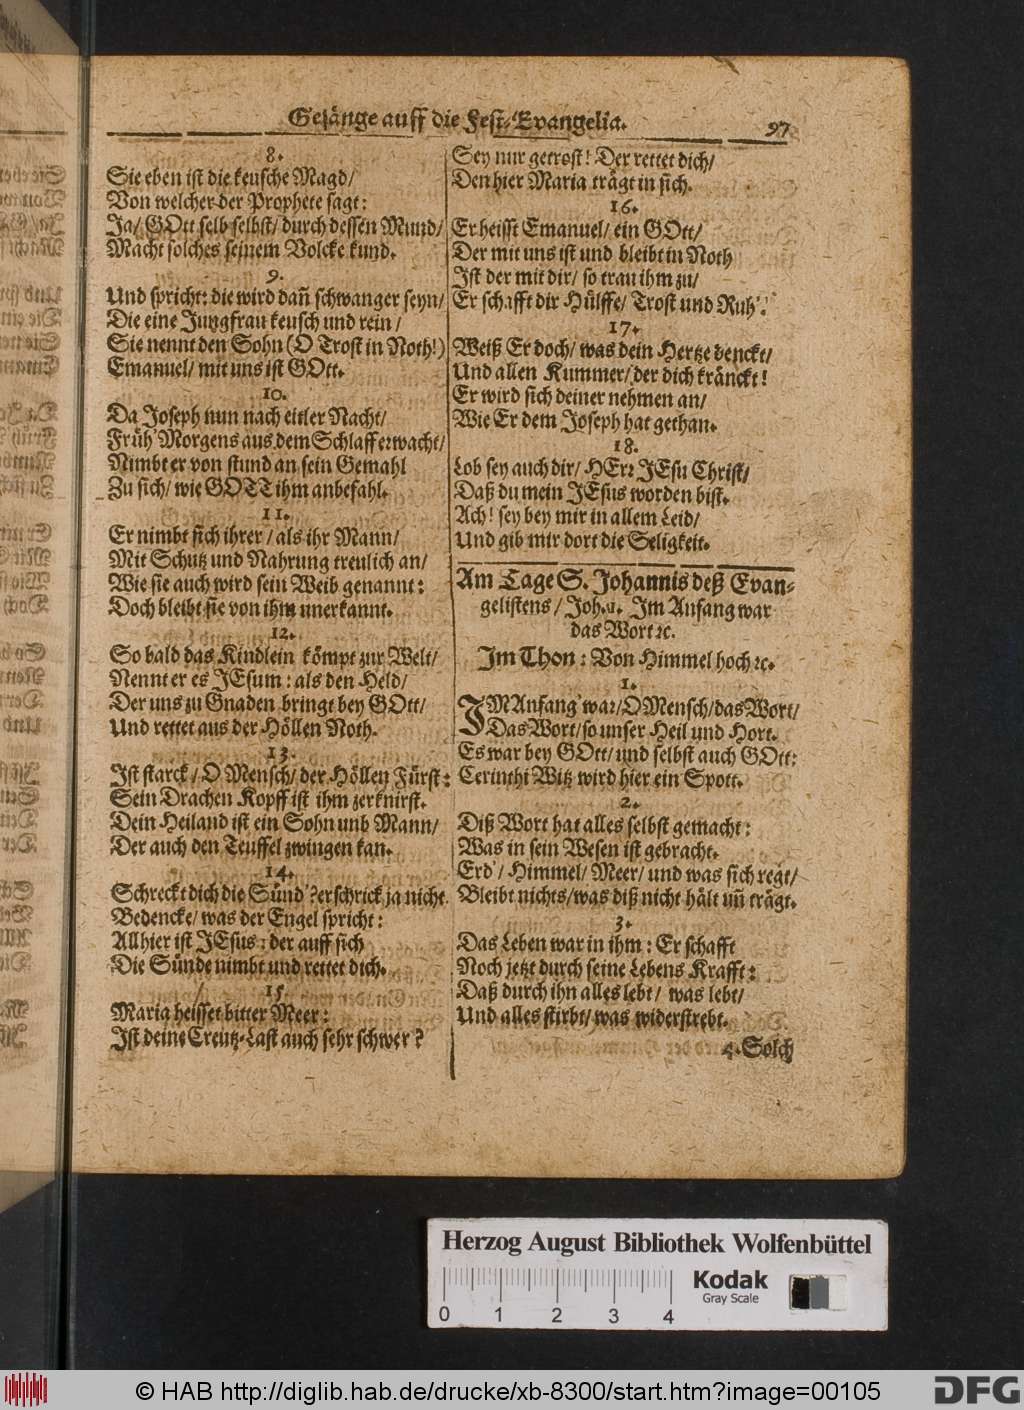 Gesänge auff die Fest-Evangelia. 97
8.
Sie eben ist die keusche Magd/
Von welcher der Prophete sagt:
Ja/ GOtt selb selbst/ durch dessen Mund/
Macht solches seinem Volcke kund.
9.
Und spricht: die wird dañ schwanger seyn/
Die eine Jungfrau keusch und rein/
Sie nennt den Sohn (O Trost in Noth!)
Emanuel/ mit uns ist GOtt.
10.
Da Joseph nun nach eitler Nacht/
Früh Morgens aus dem Schlaff erwacht/
Nimbt er von stund an sein Gemahl
Zu sich/ wie GOTT ihm anbefahl.
11.
Er nimbt sich ihrer/ als ihr Mann/
Mit Schutz und Nahrung treulich an/
Wie sie auch wird sein Weib genannt:
Doch bleibt sie von ihm unerkannt.
12.
So bald das Kindlein kömpt zur Welt/
Nennt er es JEsum: als den Held/
Der uns zu Gnaden bringt bey GOtt/
Und rettet aus der Höllen Noth.
13.
Ist starck/ O Mensch/ der Höllen Fürst:
Sein Drachen Kopff ist ihm zerknirst.
Dein Heiland ist ein Sohn unb Mann/
Der auch den Teuffel zwingen kan.
14.
Schreckt dich die Sünd? erschrick ja nicht
Bedencke/ was der Engel spricht:
Allhier ist JEsus: der auff sich
Die Sünde nimbt und rettet dich.
15.
Maria heisset bitter Meer:
Ist deine Creutz-Last auch sehr schwer?
Sey nur getrost! Der rettet dich/
Den hier Maria trägt in sich.
16.
Er heisst Emanuel/ ein GOtt/
Der mit uns ist und bleibt in Noth
Ist der mit dir/ so trau ihm zu/
Er schafft dir Hülffe/ Trost und Ruh!
17.
Weiß Er doch/ was dein Hertze denckt/
Und allen Kummer/ der dich kränckt!
Er wird sich deiner nehmen an/
Wie Er dem Joseph hat gethan.
18.
Lob sey auch dir/ HErr JEsu Christ/
Daß du mein JEsus worden bist.
Ach! sey bey mir in allem Leid/
Und gib mir dort die Seligkeit.
Am Tage S. Johannis deß Evan-
gelistens/ Joh. 1. Im Anfang war
das Wort ꝛc.
Im Thon: Von Himmel hoch ꝛc.
1.
IM Anfang war/ O Mensch/ das Wort/
Das Wort/ so unser Heil und Hort.
Es war bey GOtt/ und selbst auch GOtt:
Cerinthi Witz wird hier ein Spott.
2.
Diß Wort hat alles selbst gemacht:
Was in sein Wesen ist gebracht.
Erd/ Himmel/ Meer/ und was sich regt/
Bleibt nichts/ was diß nicht hält uñ trägt.
3.
Das Leben war in ihm: Er schafft
Noch jetzt durch seine Lebens Krafft:
Daß durch ihn alles lebt/ was lebt/
Und alles stirbt/ was widerstrebt.
4. Solch
Herzog August Bibliothek Wolfenbüttel
0 1 2 3 4
Kodak
Gray Scale
© HAB http://diglib.hab.de/drucke/xb-8300/start.htm?image=00105
DFG